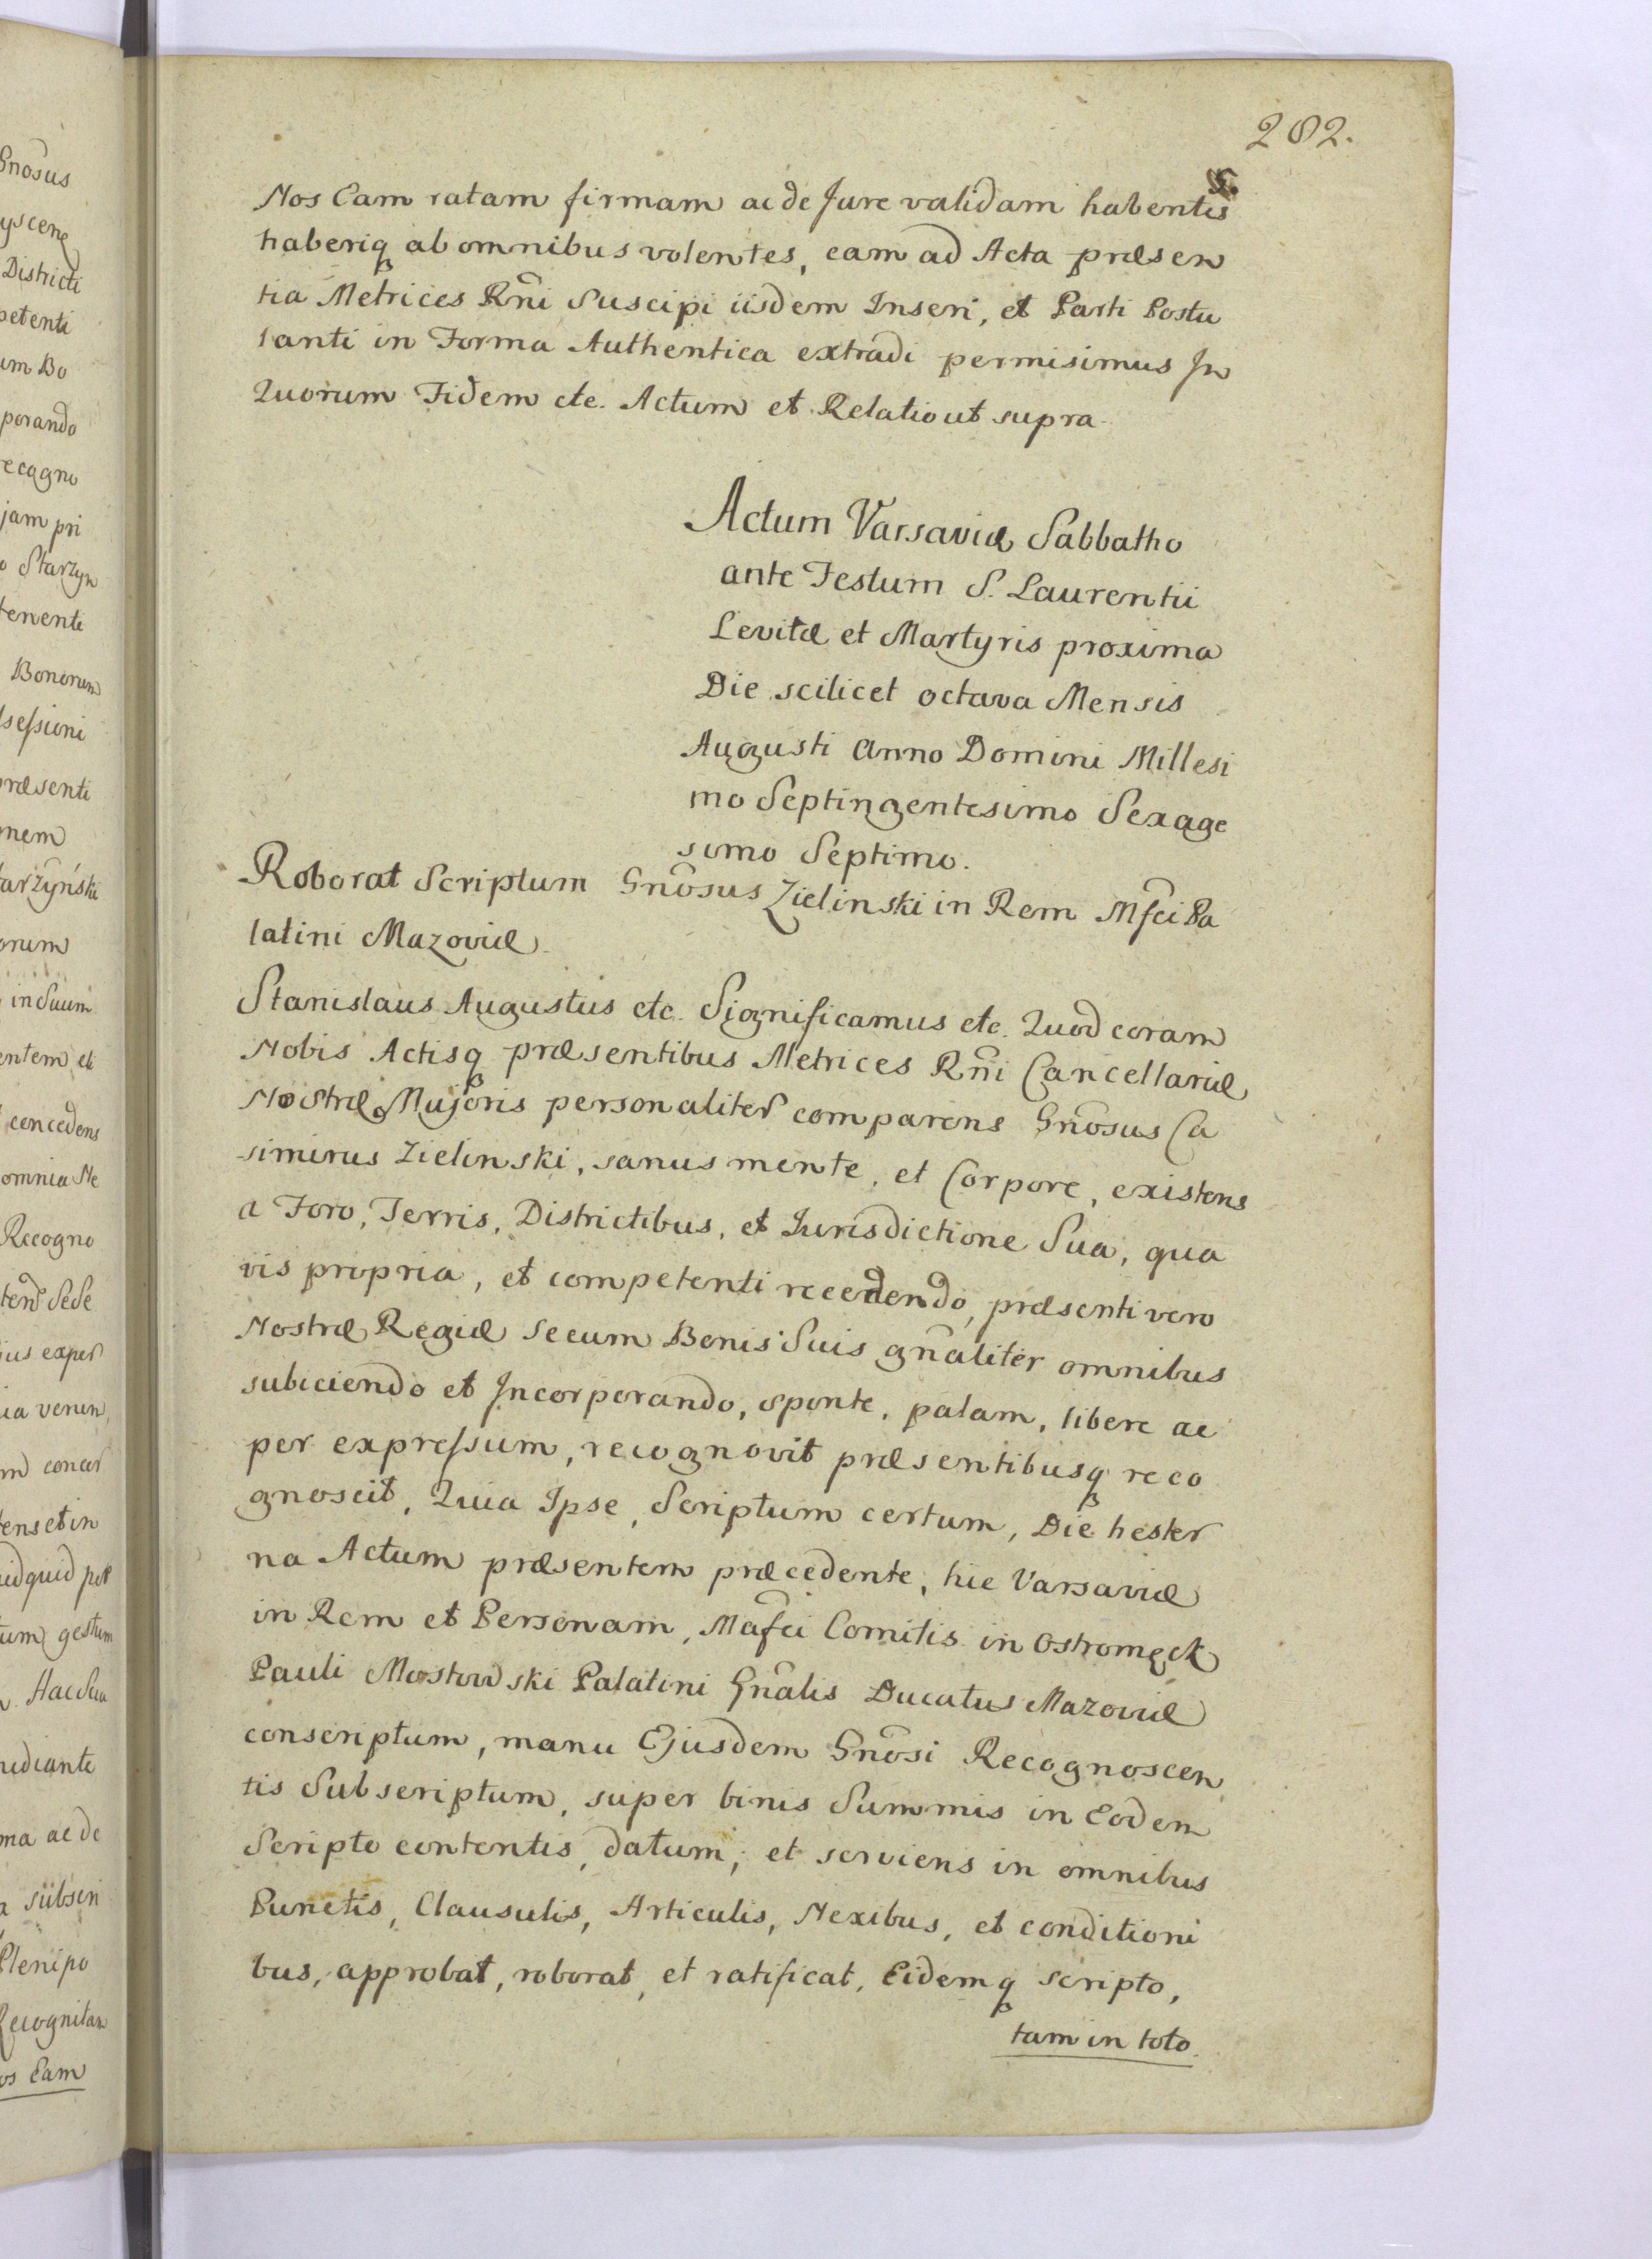 202.
Nos Eam ratam firmam ac de Jure validam habentes
haberiq ab omnibus volentes, eam ad Acta præsen
tia Metrices Rni Suscipi iisdem Inseri, et Parti Postu
lanti in Forma Authentica extradi permisimus In
Quorum Fidem etc. Actum et Relatio ut supra
Actum Varsaviæ Sabbatho
ante Festum S. Laurentii
Levitæ et Martyris proxima
Die scilicet octava Mensis
Augusti Anno Domini Millesi
mo Septingentesimo Sexage
simo Septimo.
Roborat Scriptum Gnosus Zielinski in Rem Mfci Pa
latini Mazoviæ
Stanislaus Augustus etc. Significamus etc. Quod coram
Nobis Actisq præsentibus Metrices Rni Cancellariæ
Nostræ Majoris personaliter comparens Gnosus Ca
simirus Zielinski, sanus mente, et Corpore, existens
a Foro, Terris, Districtibus, et Jurisdictione Sua, qua
vis propria, et competenti recedendo, præsenti vero
Nostræ Regiæ Secum Bonis Suis gnaliter omnibus
subiciendo et Incorporando, sponte, palam, libere ac
per expressum, recognovit præsentibusq reco
gnoscit, Quia Ipse, Scriptum certum, Die hester
na Actum præsentem præcedente, hic Varsaviæ
in Rem et Personam, Mafci Comitis in Ostromęck
Pauli Mostowski Palatini Gnalis Ducatus Mazoviæ
conscriptum, manu Ejusdem Gnosi Recognoscen
tis Subscriptum, super binis Summis in Eodem
Scripto contentis, datum, et serviens in omnibus
Punctis, Clausulis, Articulis, Nexibus, et conditioni
bus, approbat, roborat, et ratificat, Eidemq scripto,
tam in toto